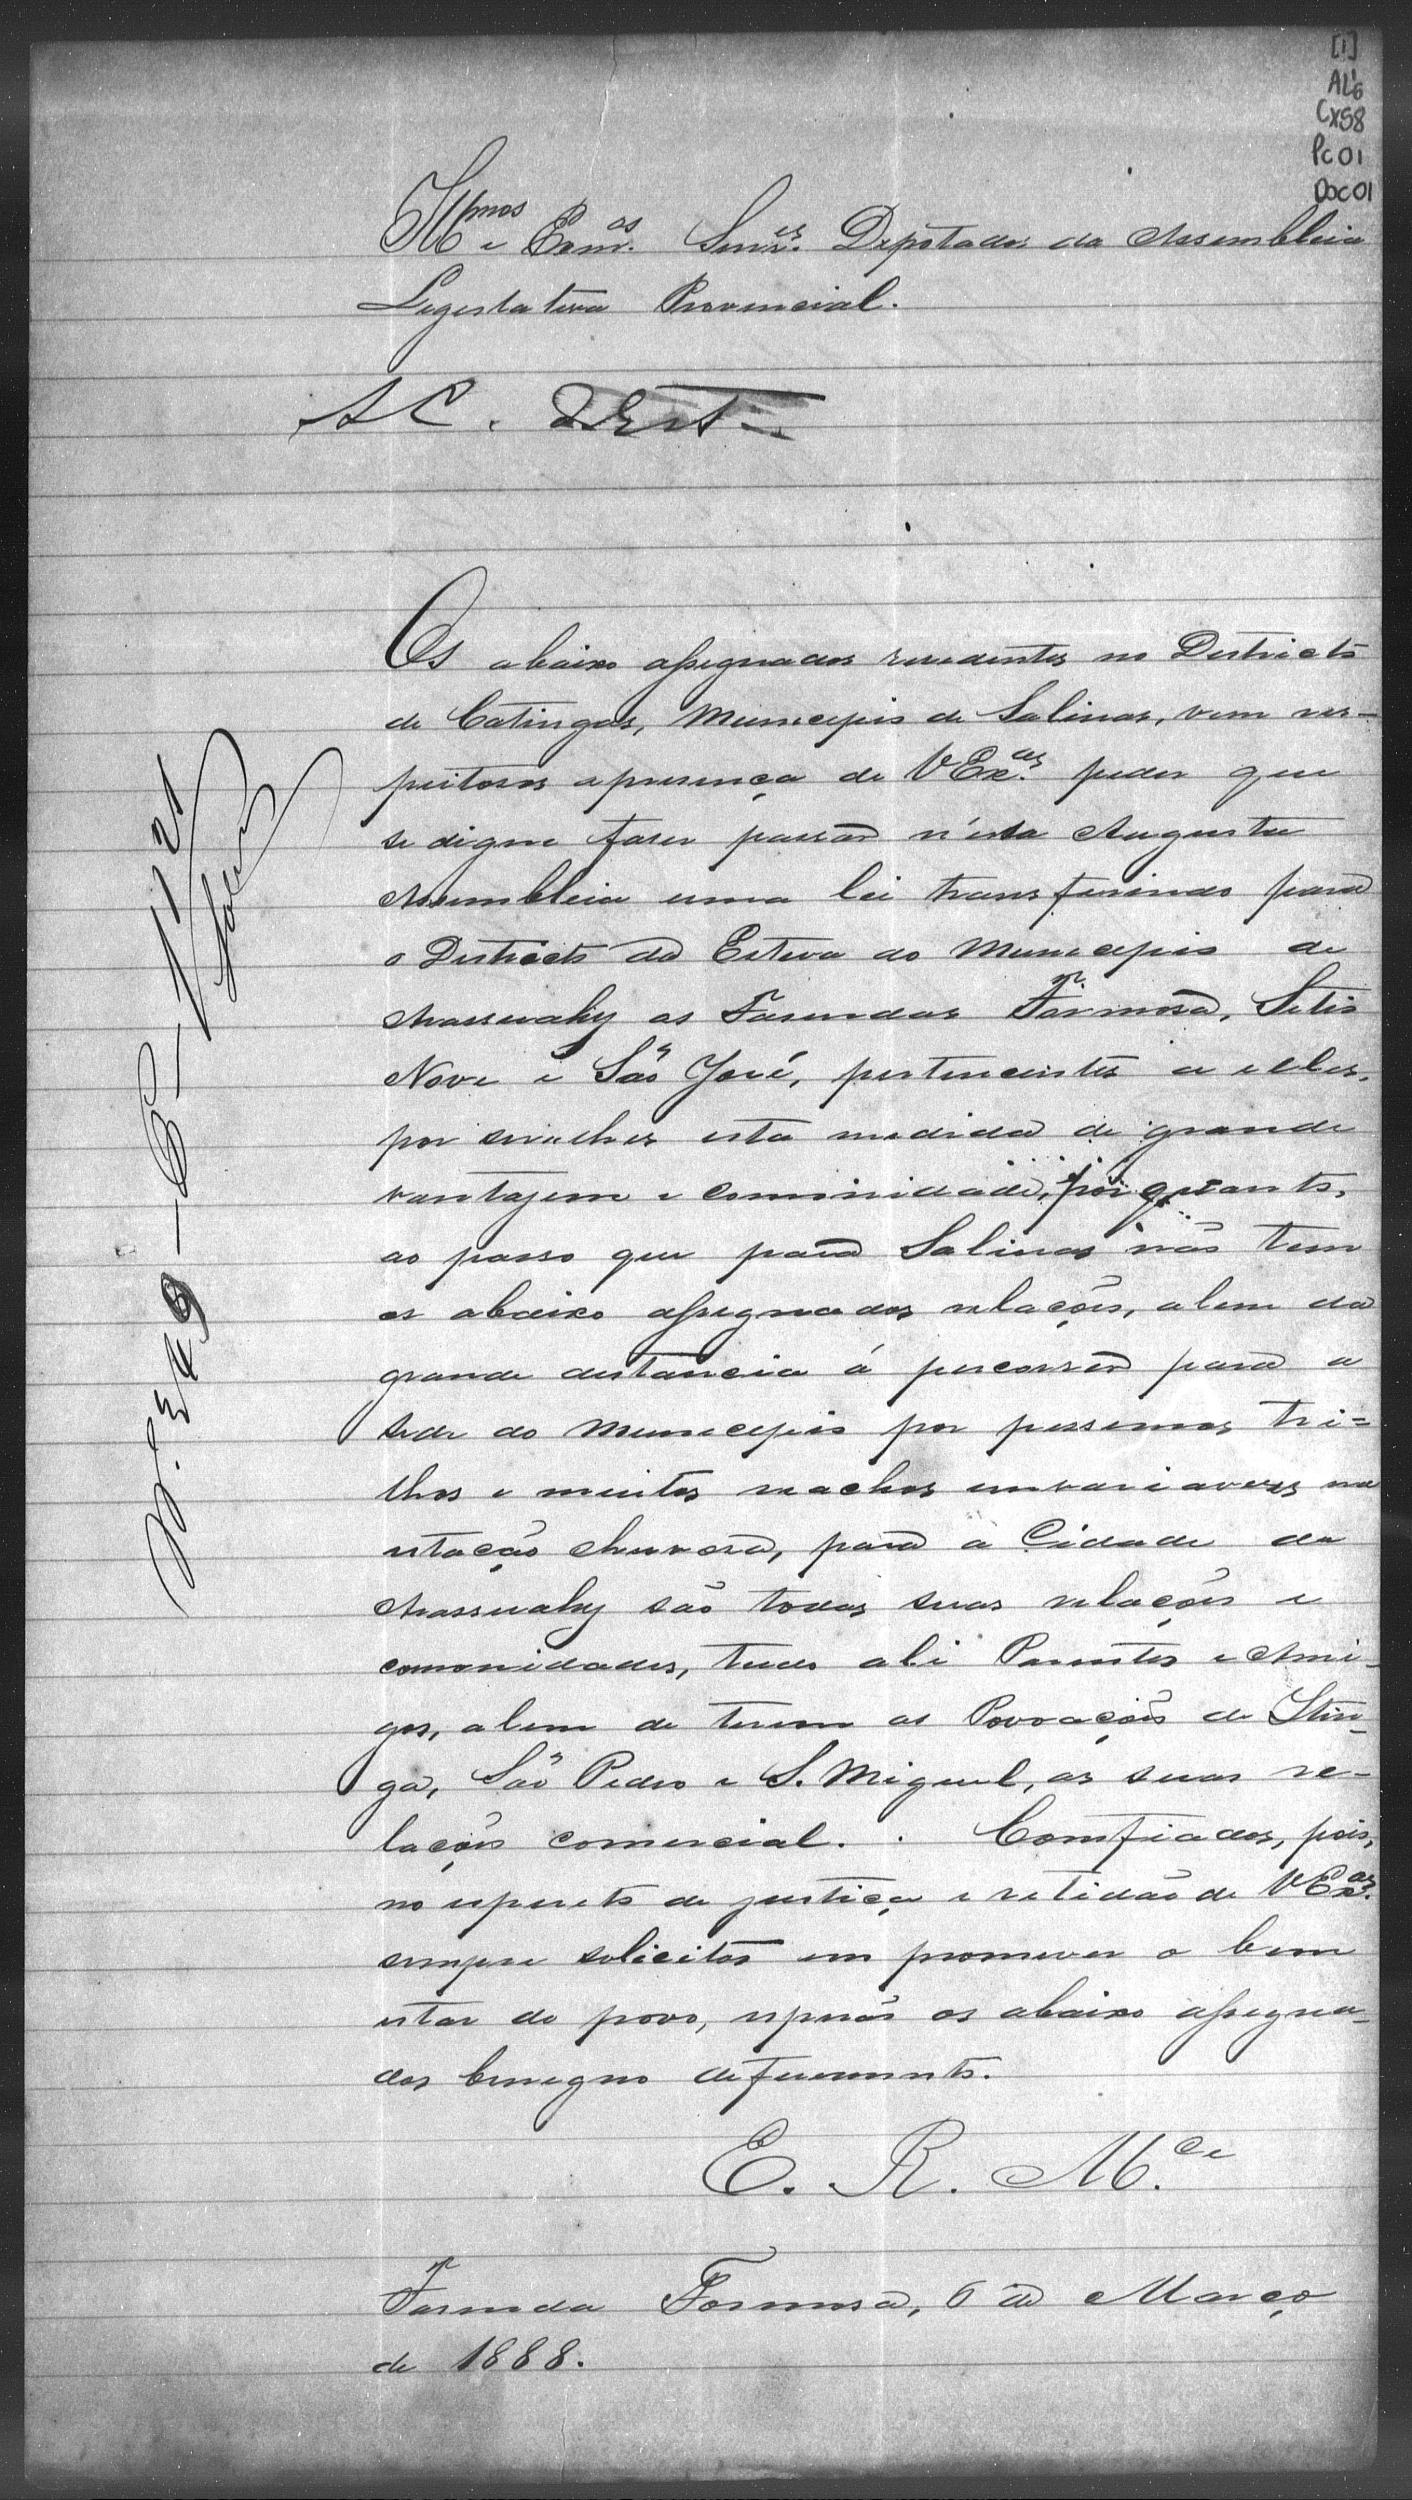 [1]
AL6
Cx58
Pc01
Doc01
Illmos e Exmos. Snres. Deputados da Assembleia
Legislativa Provincial.
A C.
Os abaixo assignados residentes no Districto
de Catingas, Municipio de Salinas, vem res-
peitosos a presença de V Exas. pedir que
se digne faser passar n'esta Augusta
Assembleia uma lei transferindo para
o Districto da Esteva do Municipio de
Arassuahy as Fasendas Formosa, Sitio
Novo e São José, pertencentes a elles,
por ser-lhes esta medida de grande
vantajem e comonidade, por quanto,
ao passo que para Salinas não tem
os abaixo assignados relações, alem da
grande distancia á percorrer para a
séde do Municipio por pessimos tri=
lhos e muitos riachos invariaveis na
estação chuvosa, para a Cidade da
Arassuahy são todas suas relações e
comonidades, tendo ali Parentes e Ami-
gos, alem de terem as Povoações de Itin-
ga, São Pedro e S. Miguel, as suas re-
lações comercial. Comfiados, pois,
no espirito de justiça e retidão de V Exas.
sempre solicitos em promover o bem
estar do povo, esperão os abaixo assigna-
dos benigno deferimento.
E. R. M.ce
Fasenda Formosa, 6 de Março
de 1888.